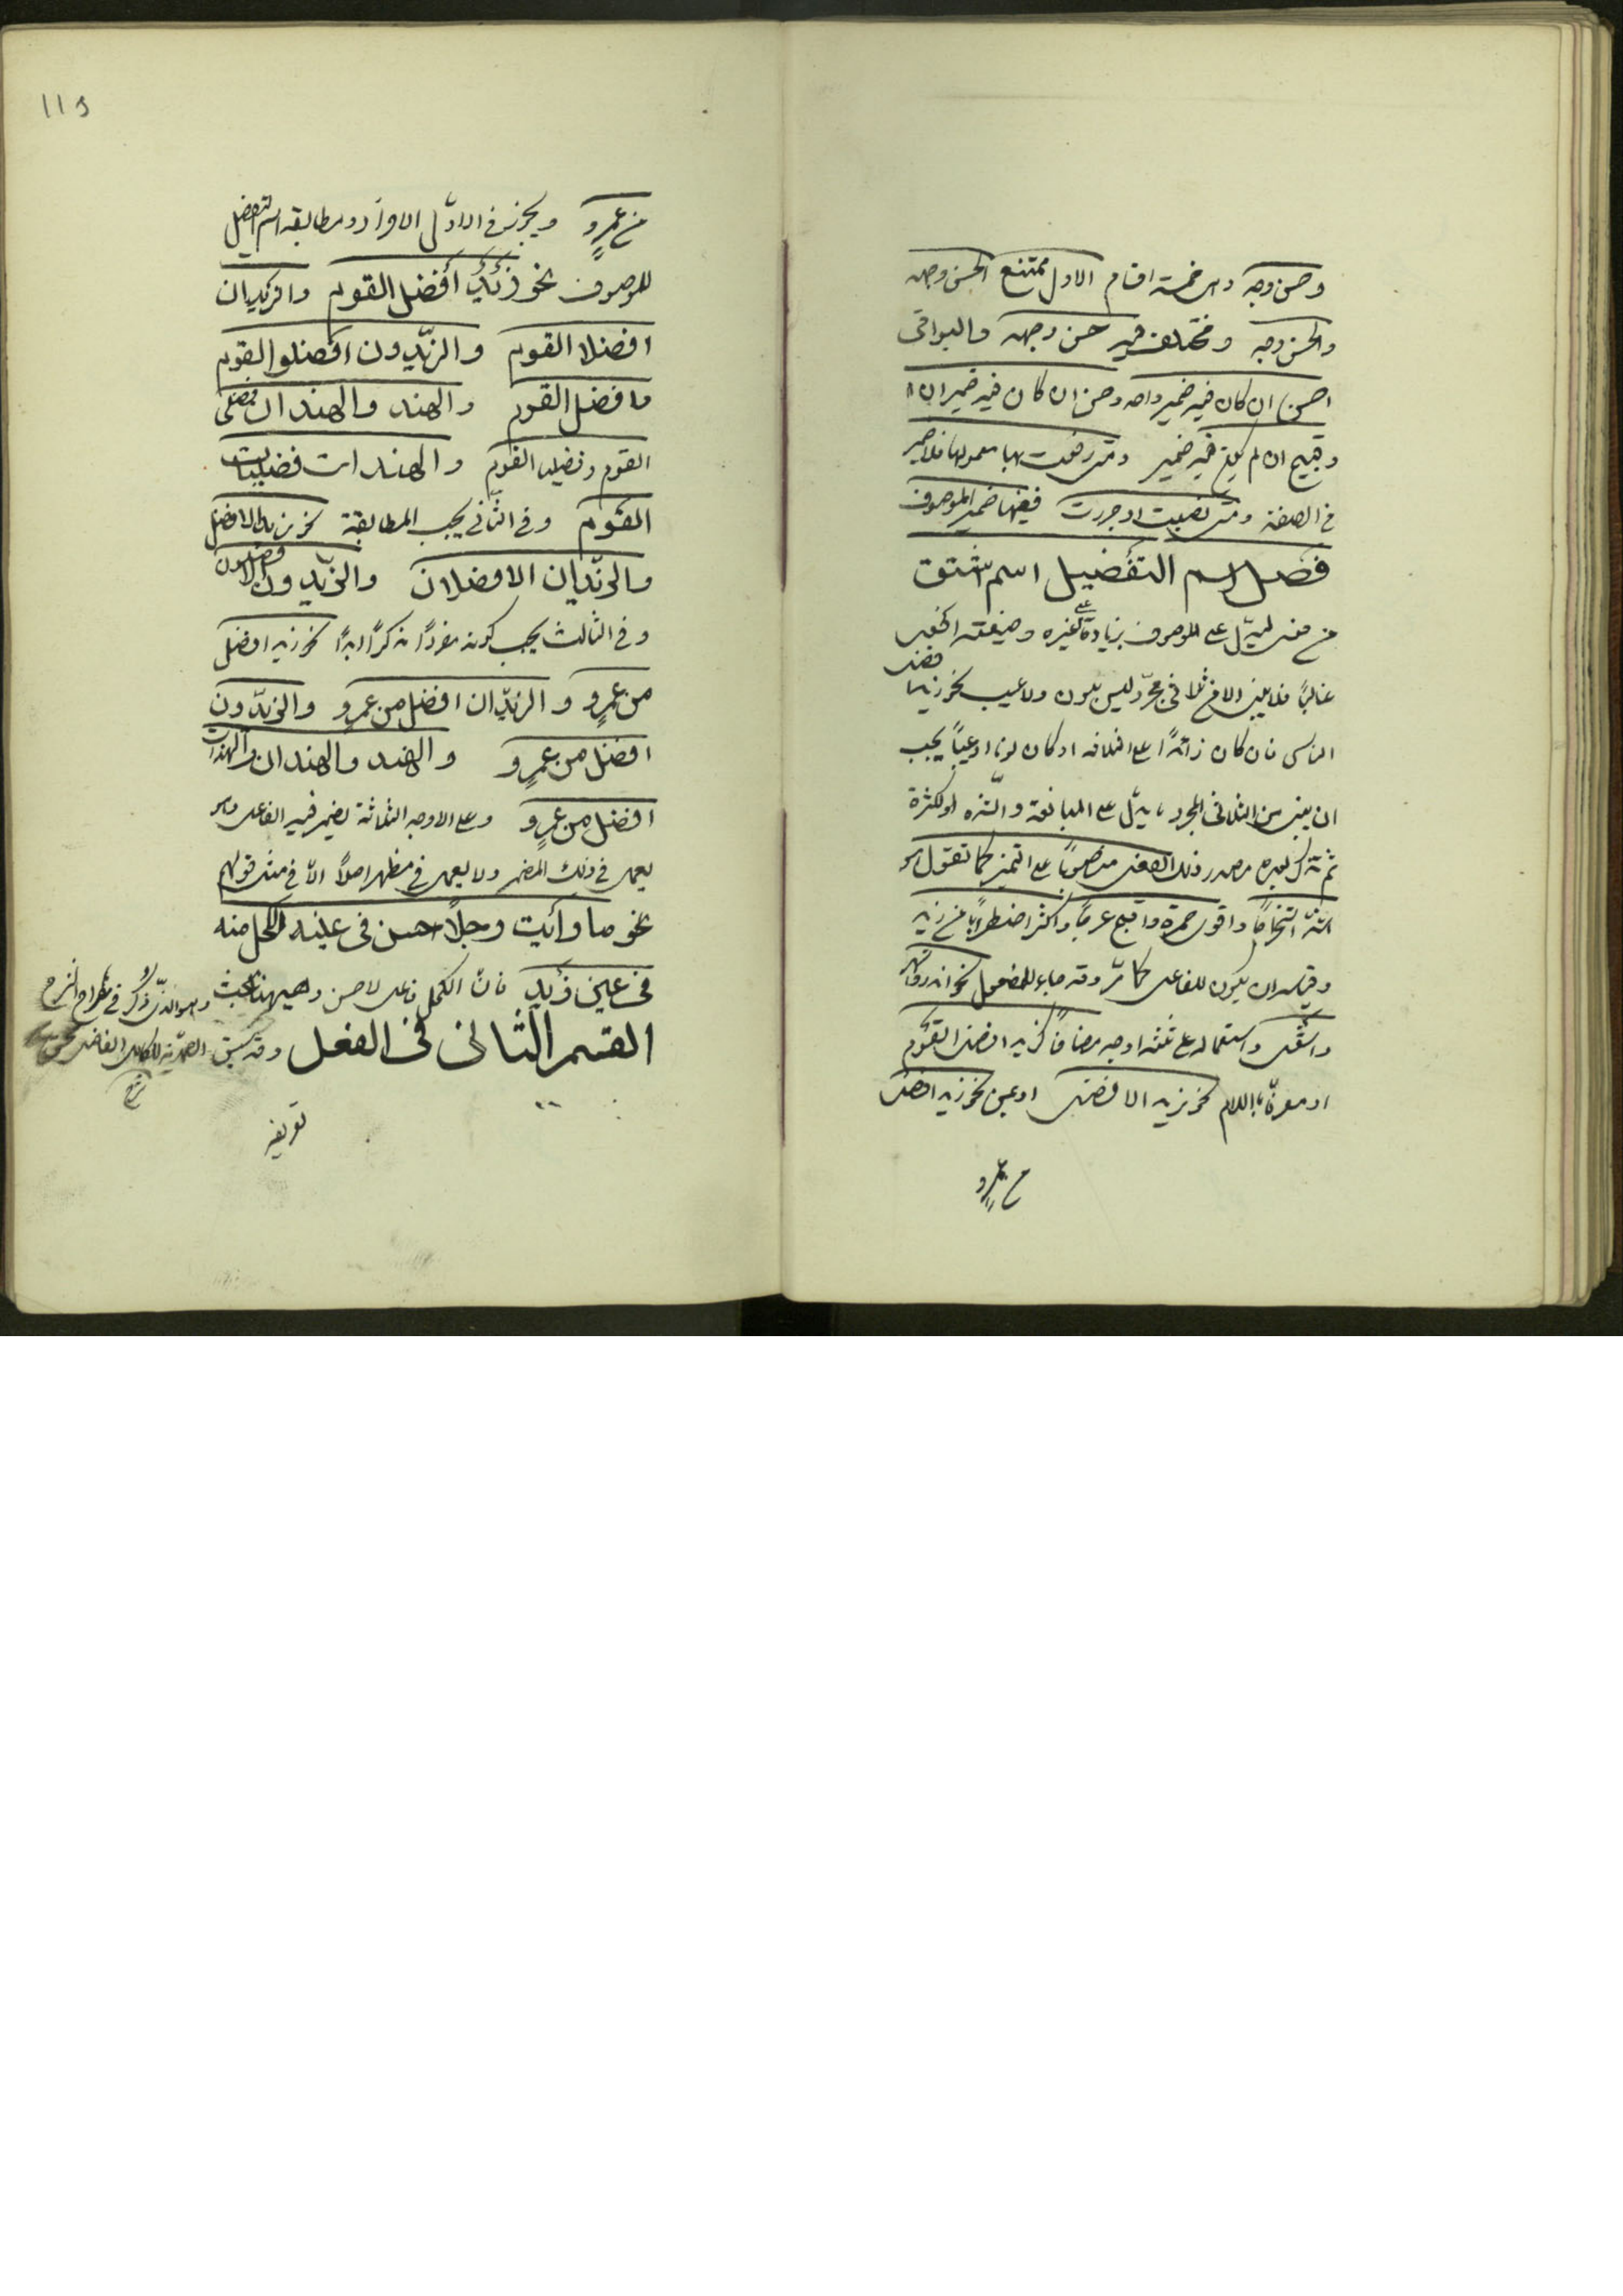 وحسن وجه وهي خمسة اقسام الاول ممتنع الحسن وجهه
والحسن وجه ومختلف فيه حسن وجهه والبواقي
احسن ان كان فيه ضمير واحد وحسن ان كان فيه ضميران
وقبيح ان لم يكن فيه ضمير ومتى رفعت بها معمولها فلا ضمير
في الصفة ومتى نصبت او جررت ففيها ضمير الموصوف
فصل اسم التفضيل اسم اشتق
من فعل ليدل على الموصوف بزيادة على غيره وصيغته افعل
غالبًا فلا يبنى الا من ثلاثي مجرد ليس بلون ولا عيب نحو زيد افضل
الناس فان كان زائدًا على الثلاثة او كان لونا او عيبًا يجب
ان يبنى من الثلاثي المجرد ما يدل على المبالغة والشدة او الكثرة
ثم تذكر بعده مصدر ذلك الفعل منصوبًا على التميز كما تقول هو
اشد استخراجًا واقوى حمرة واقبح عرجًا واكثر اضطرابًا من زيد
وقياسه ان يكون للفاعل كما مر وقد جاء للمفعول نحو اعذر واشهر
واشغل واستعماله على ثلثة اوجه مضافًا كزيد افضل القوم
او معرفًا باللام نحو زيد الافضل او بمن نحو زيد افضل
من عمرو
115
من عمرٍو ويجوز في الاول الافراد ومطابقة اسم التفضيل
للموصوف نحو زيد افضل القوم والزيدان
افضلا القوم والزيدون افضلو القوم
وافضل القوم والهند والهندان فضلى
القوم وفضليا القوم والهندات فضليات
القوم وفي الثاني يجب المطابقة نحو زيد الافضل
والزيدان الافضلان والزيدون الافضلون
وفي الثالث يجب كونه مفردًا مذكرًا ابدًا نحو زيد افضل
من عمرٍو والزيدان افضل من عمرٍو والزيدون
افضل من عمرٍو والهند والهندان والهندات
افضل من عمرٍو وعلى الاوجه الثلاثة يضمر فيه الفاعل وهو
يعمل في ذلك المضمر ولا يعمل في مظهر اصلًا الا في مثل قولهم
نحو ما رأيت رجلًا احسن في عينه الكحل منه
في عين زيد فان الكحل فاعل لاحسن وههنا بحث
القسم الثاني في الفعل وقد سبق
تعريفه